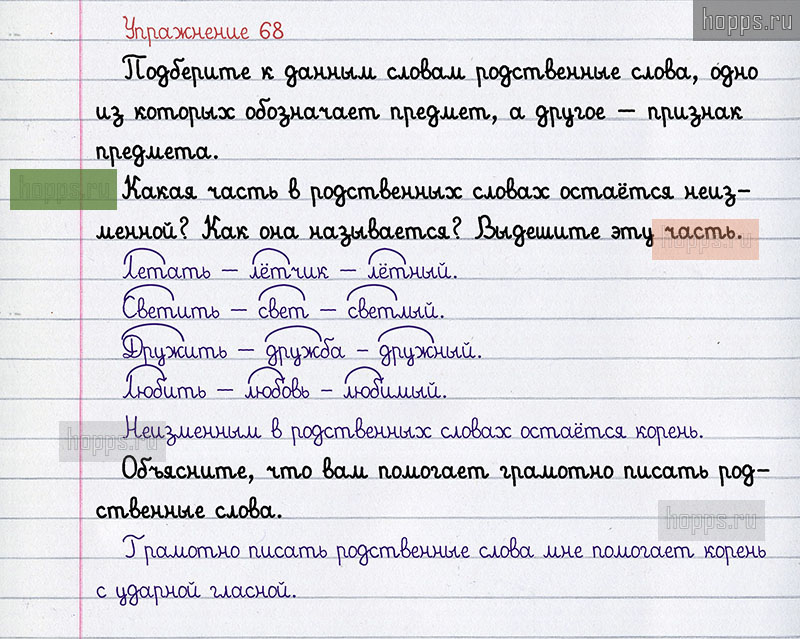 hopps.ru
Упражнение 68
Подберите к данным словам родственные слова, одно
из которых обозначает предмет, а другое — признак
предмета.
hopps.ru
Какая часть в родственных словах остаётся неиз-
менной? Как она называется? Выдешите эту часть.
hopps.ru
Летать — лётчик — лётный.
Светить — свет — светлый.
Дружить — дружба – дружный.
Любить — любовь – любимый.
hopps.ru
Неизменным в родственных словах остаётся корень.
Объясните, что вам помогает грамотно писать род-
ственные слова.
hopps.ru
Грамотно писать родственные слова мне помогает корень
с ударной гласной.